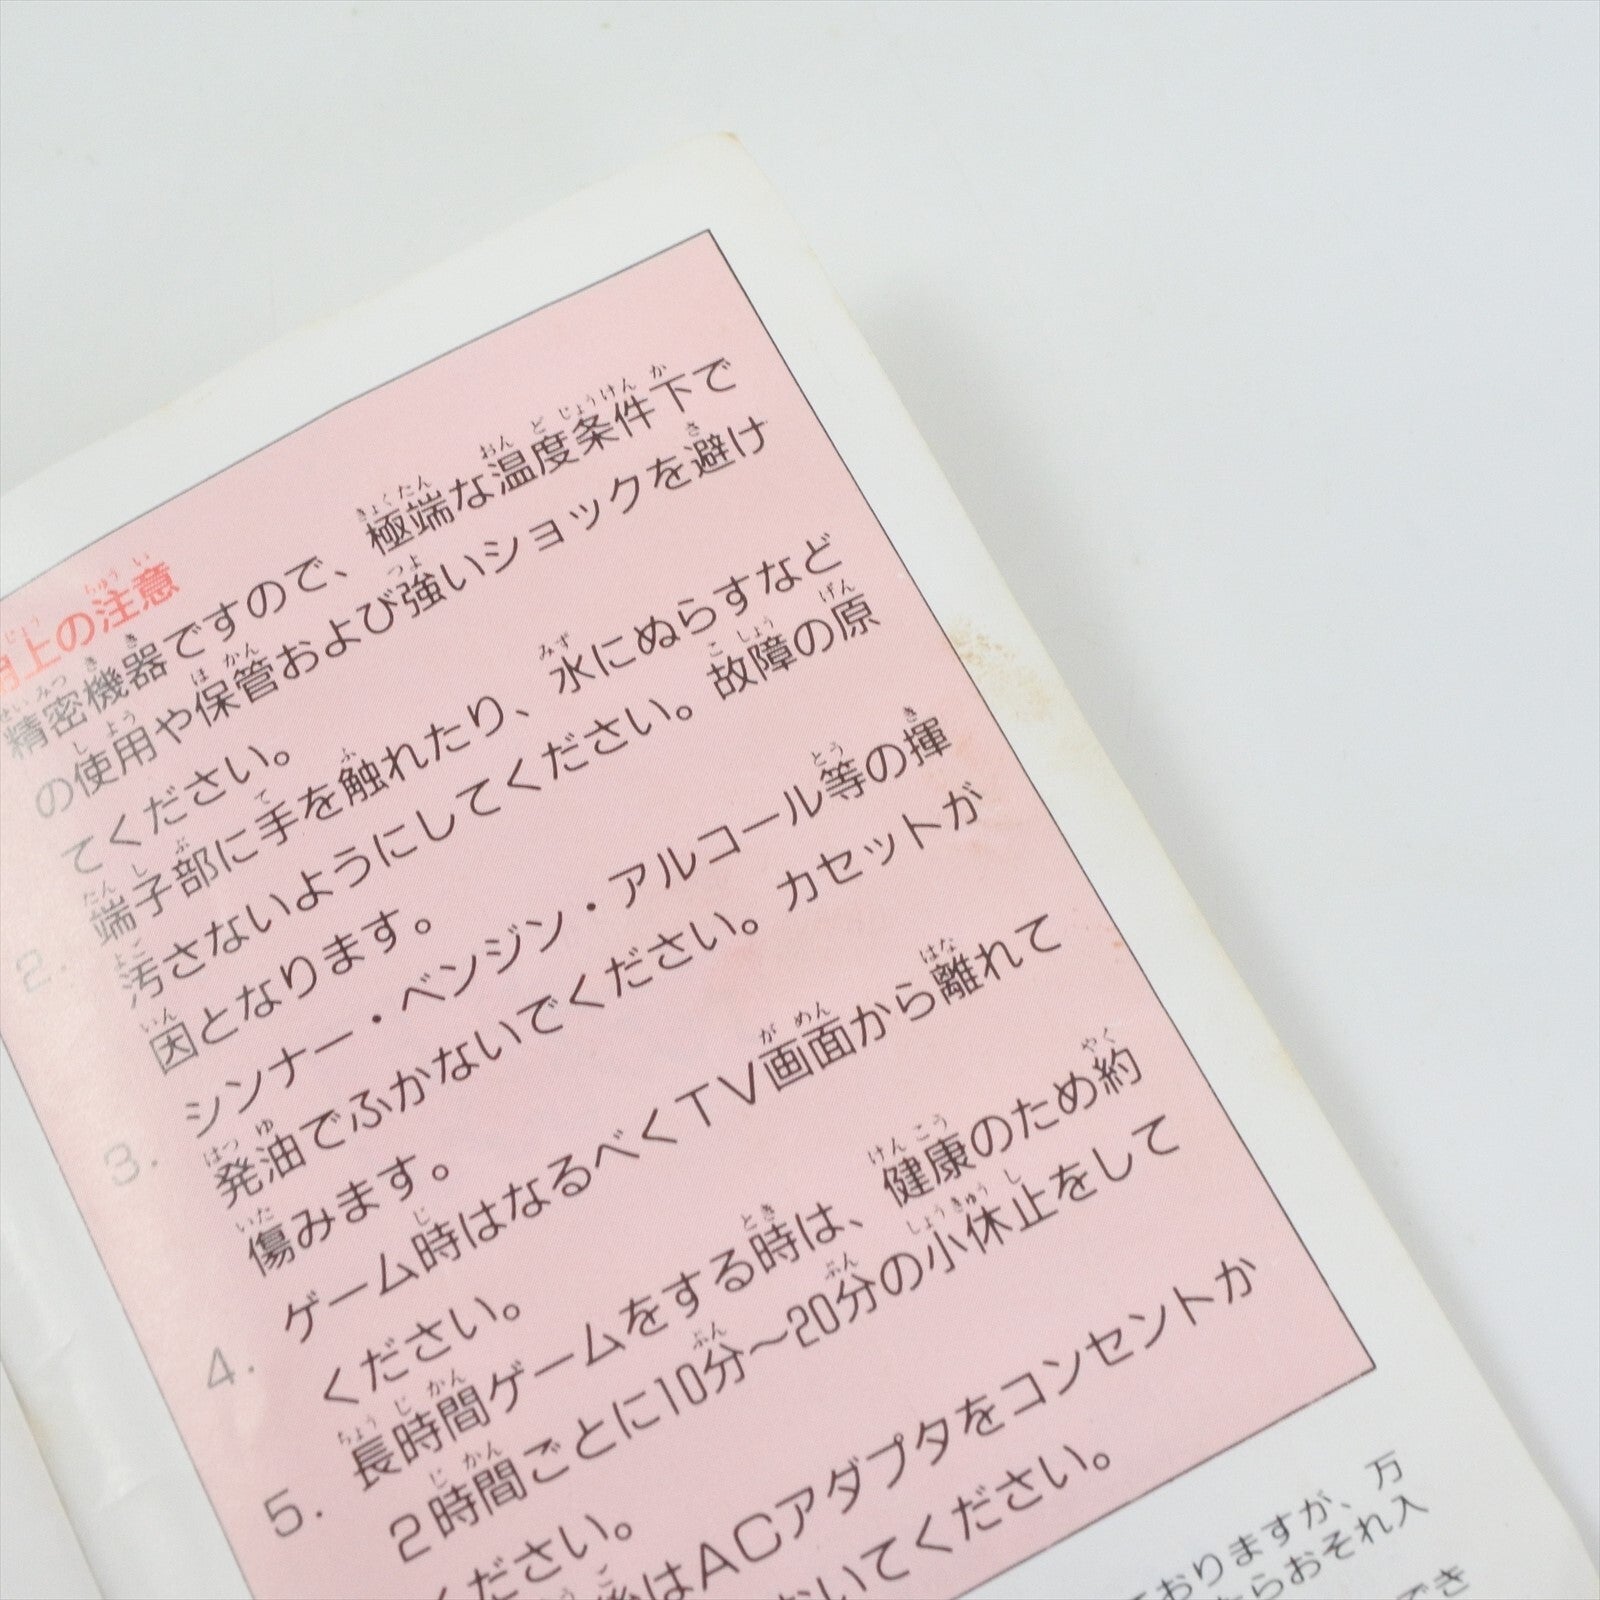 用上の注意
精密機器ですので、極端な温度条件下で
の使用や保管および強いショックを避け
てください。
2. 端子部に手を触れたり、水にぬらすなど
汚さないようにしてください。故障の原
因となります。
3. シンナー・ベンジン・アルコール等の揮
発油でふかないでください。カセットが
傷みます。
4. ゲーム時はなるべくTV画面から離れて
ください。
5. 長時間ゲームをする時は、健康のため約
2時間ごとに10分〜20分の小休止をして
ください。
後はACアダプタをコンセントか
おいてください。
おりますが、万
らおそれ入
でき